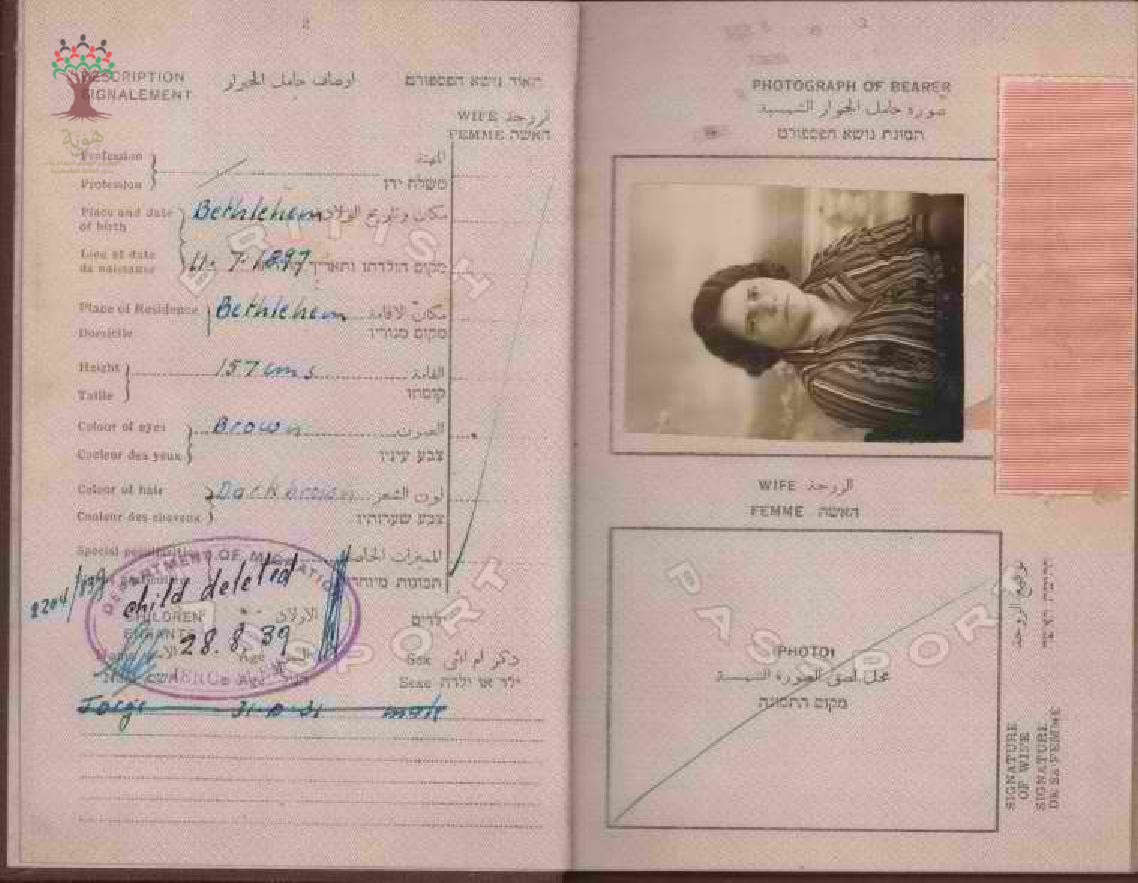 2
DESCRIPTION اوصاف حامل الجواز תאור נושא הפספורט
SIGNALEMENT
هوية
WIFE الزوجة
FEMME האשה
Profession المهنة
Profession משלח ידו
Place and date of birth Bethlehem مكان وتاريخ الولادة
Lieu et date de naissance 11.7.1897 מקום הולדתו ותאריך
Place of Residence Bethlehem مكان الاقامة
Domicile מקום מגוריו
Height 157 cms القامة
Taille קומתו
Colour of eyes Brown العيون
Couleur des yeux צבע עיניו
Colour of hair Dark brown لون الشعر
Couleur des cheveux צבע שערותיו
Special peculiarities المميزات الخاصة
תכונות מיוחדות
BRITISH
PASSPORT
DEPARTMENT OF MIGRATION
child deleted
2204/
28.8.39
CHILDREN الاولاد ילדים
ENFANTS
Name الاسم Age السن Sex ذكر ام انثى
Age Sexe ילד או ילדה
Jorge 31 male
3
PHOTOGRAPH OF BEARER
صورة حامل الجواز الشمسية
תמונת נושא הפספורט
WIFE الزوجة
FEMME האשה
PASSPORT
PHOTO
محل لصق الصورة الشمسية
מקום התמונה
توقيع الزوجة
חתימת האשה
SIGNATURE
OF WIFE
SIGNATURE
DE SA FEMME